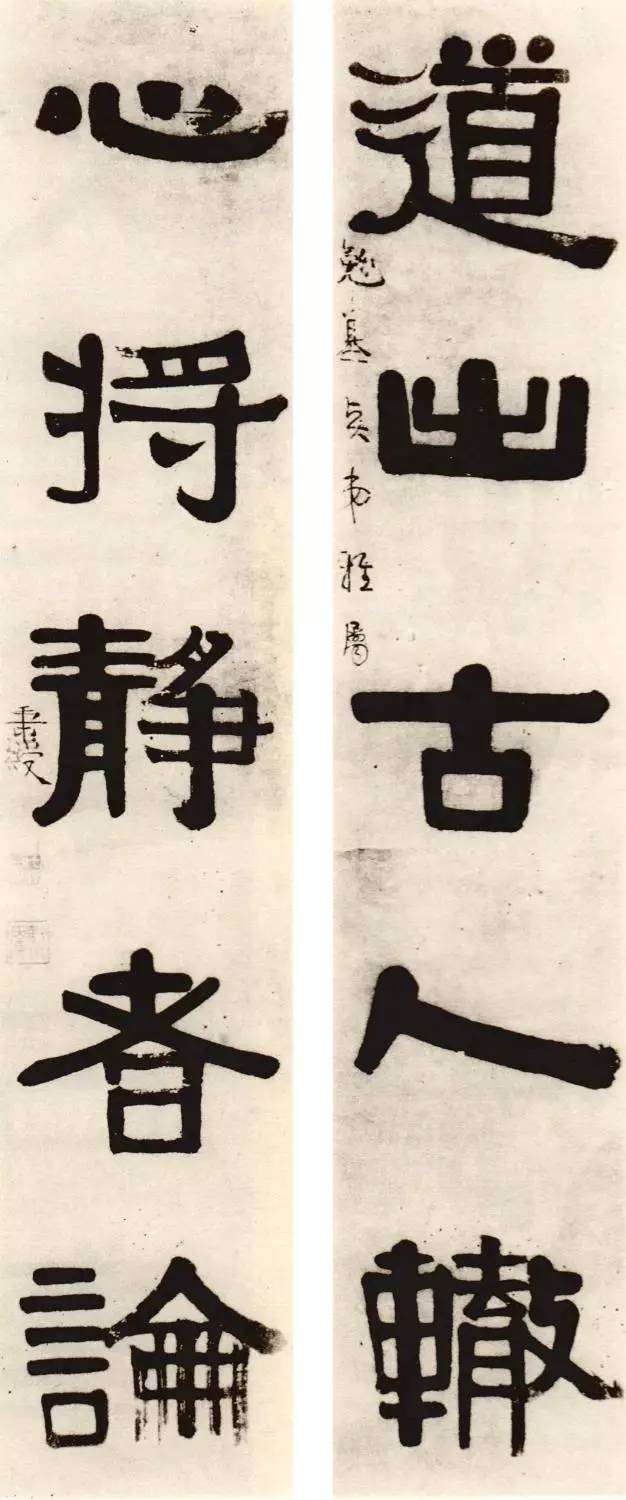 道出古人轍
弟雅屬
心将静者論
秉綬